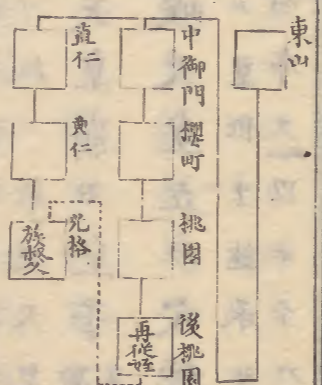 東山
中御門
櫻町
桃園
後桃園
再從姪
直仁
典仁
兼格
族叔父